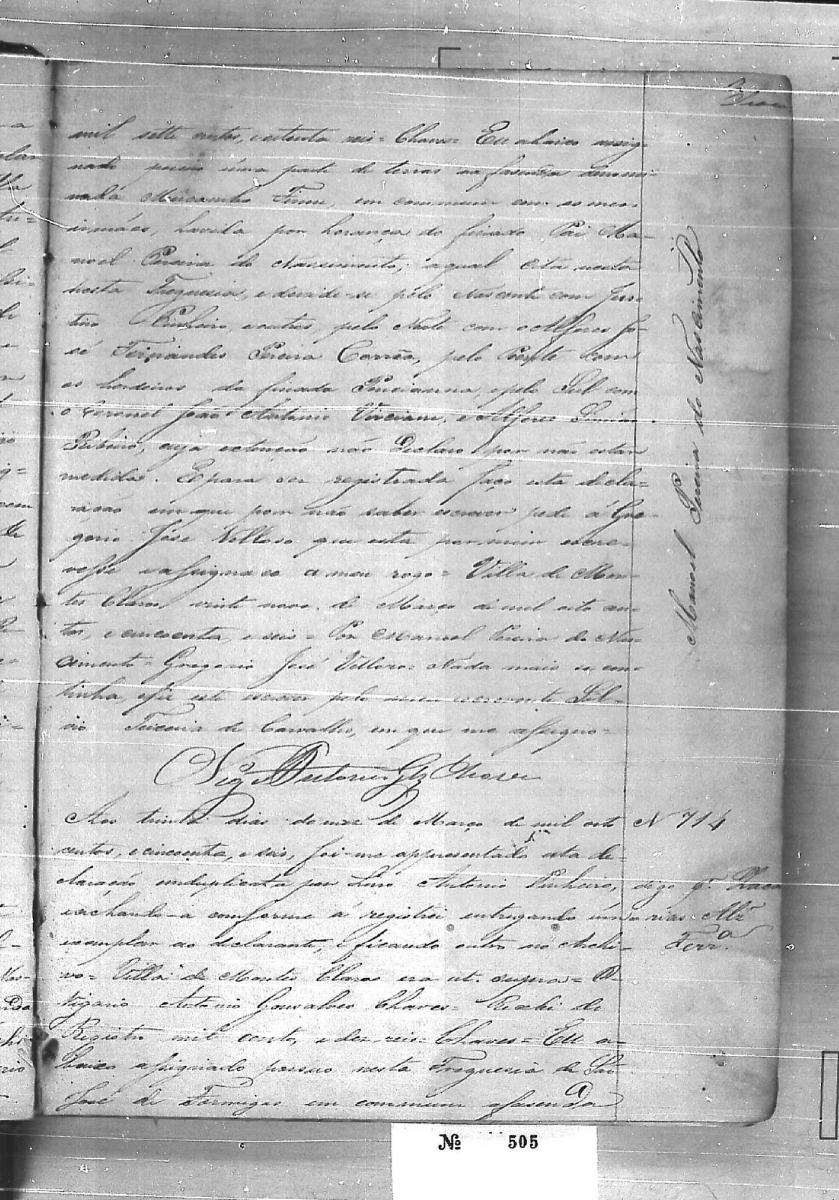 mil sette centos, e setenta reis = Chaves = Eu abaixo assig-
nado possuo uma parte de terras na fasenda denomi-
nada em commum com os meos
irmáos, havida por herança do finado Pai Ma-
noel Pereira do Nascimento, a qual cita nesta
nesta Freguesia, e devide-se pelo Nascente com Jus-
tino Pinheiro, e outros, pelo Norte com o Alferes Jo-
sé Fernandes Pereira Corrêa, pelo Poente com
os herdeiros da finada e pelo Sul com
o Coronel João Antonio e Alferes Simão
Ribeiro, cuja extenção não Declaro por não estar
medida. E para ser registrada faço esta decla-
ração em que por não saber escrever pede á Gre-
gorio José Velloso que esta por mim escre-
vesse e assignace a meu rogo = Villa de Mon-
tes Claros vinte nove de Março de mil oito cen-
tos, e cincoenta, e seis = Por Manoel Pereira do Nas-
cimento = Gregorio José Velloso = Nada mais se con-
tinha, e fiz este escrever pelo meu escrevente
Teixeira de Carvalho, em que me assigno =
Antonio Glz Chaves
Manoel Pereira do Nascimento
Aos trinta dias do mez de Março de mil oito
centos, e cincoenta, e seis, foi-me appresentado esta de-
claração em duplicata por Lino Antonio Pinheiro,
e achando-a conforme á registrei entregando úm
exemplar ao declarante, ficando outro no Archi-
vo = Villa de Montes Claros era ut supra = O
Vigario Antonio Gonsalves Chaves = Recebi do
Registro mil cento, e dez reis = Chaves = Eu a-
baixo assignado possuo nesta Freguesia de São
José de Formigas em commum a fasenda
N 714
digo pr.
Ferra.
Nº 505